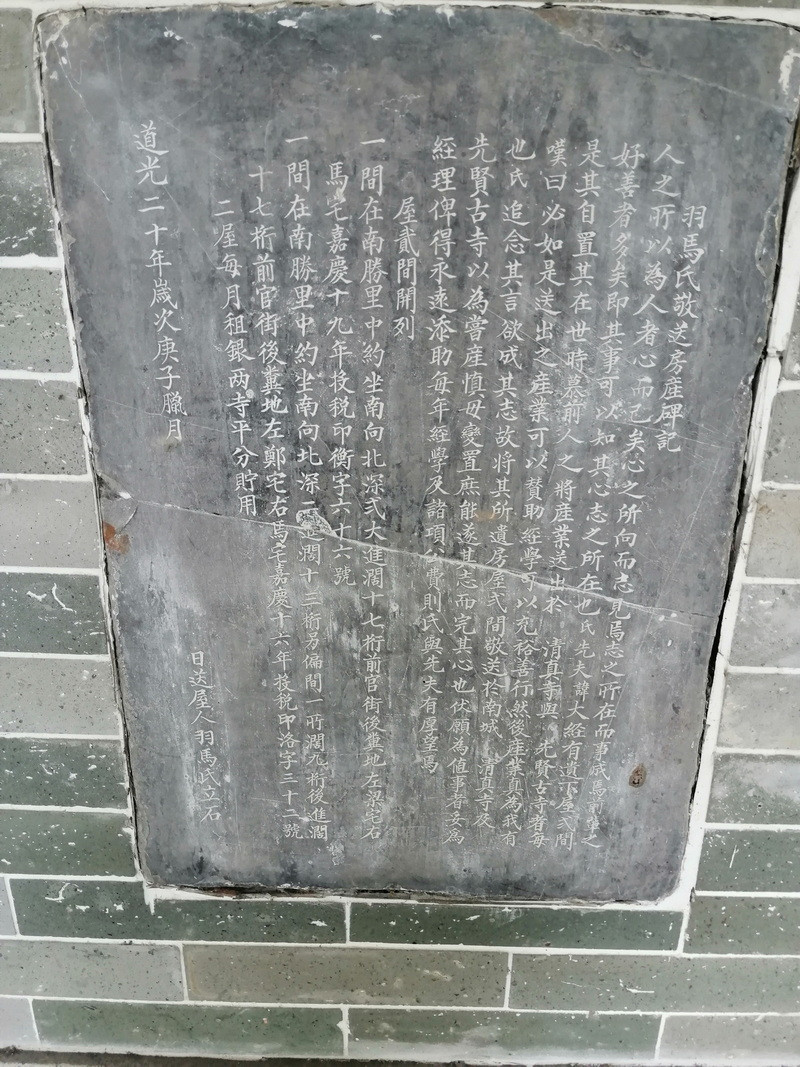 羽馬氏敬送房産碑記
人之所以為人者心而已矣心之所向而志見焉志之所在而事成焉前輩之
好善者多矣即其事可以知其心志之所在也氏先夫諱大經有遺下屋弍間
是其自置其在世時慕前人之將産業送出於 清真寺與 先賢古寺者每
嘆曰必如是送出之産業可以贊助經學可以充裕善行然後産業真為我有
也氏追念其言欲成其志故將其所遺房屋弍間敬送於南城 清真寺及
先賢古寺以為嘗産慎毋變置庶能遂其志而完其心也伏願為值事者妥為
經理俾得永遠添助每年經學及諸項公費則氏與先夫有厚望焉
屋貳間開列
一間在南勝里中約坐南向北深弍大進濶十七桁前官街後糞地左梁宅右
馬宅嘉慶十九年投税印衡字六十六號
一間在南勝里中約坐南向北深二進濶十三桁另偏間一所濶九桁後進濶
十七桁前官街後糞地左鄭宅右馬宅嘉慶十六年投税印洛字三十二號
二屋每月租銀两寺平分貯用
道光二十年嵗次庚子臘月 日送屋人羽馬氏立石